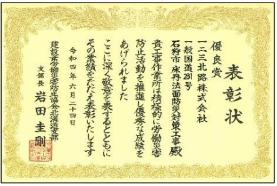 表彰状
優良賞
一二三北路株式会社
一般国道231号
石狩市床丹法面防災対策工事殿
貴工事作業所は積極的に労働災害
防止活動を推進し優秀な成績を
あげられました
ここに深く敬意を表するとともに
その業績をたたえ表彰いたします
令和四年六月二十四日
建設業労働災害防止協会北海道支部
支部長 岩田圭剛